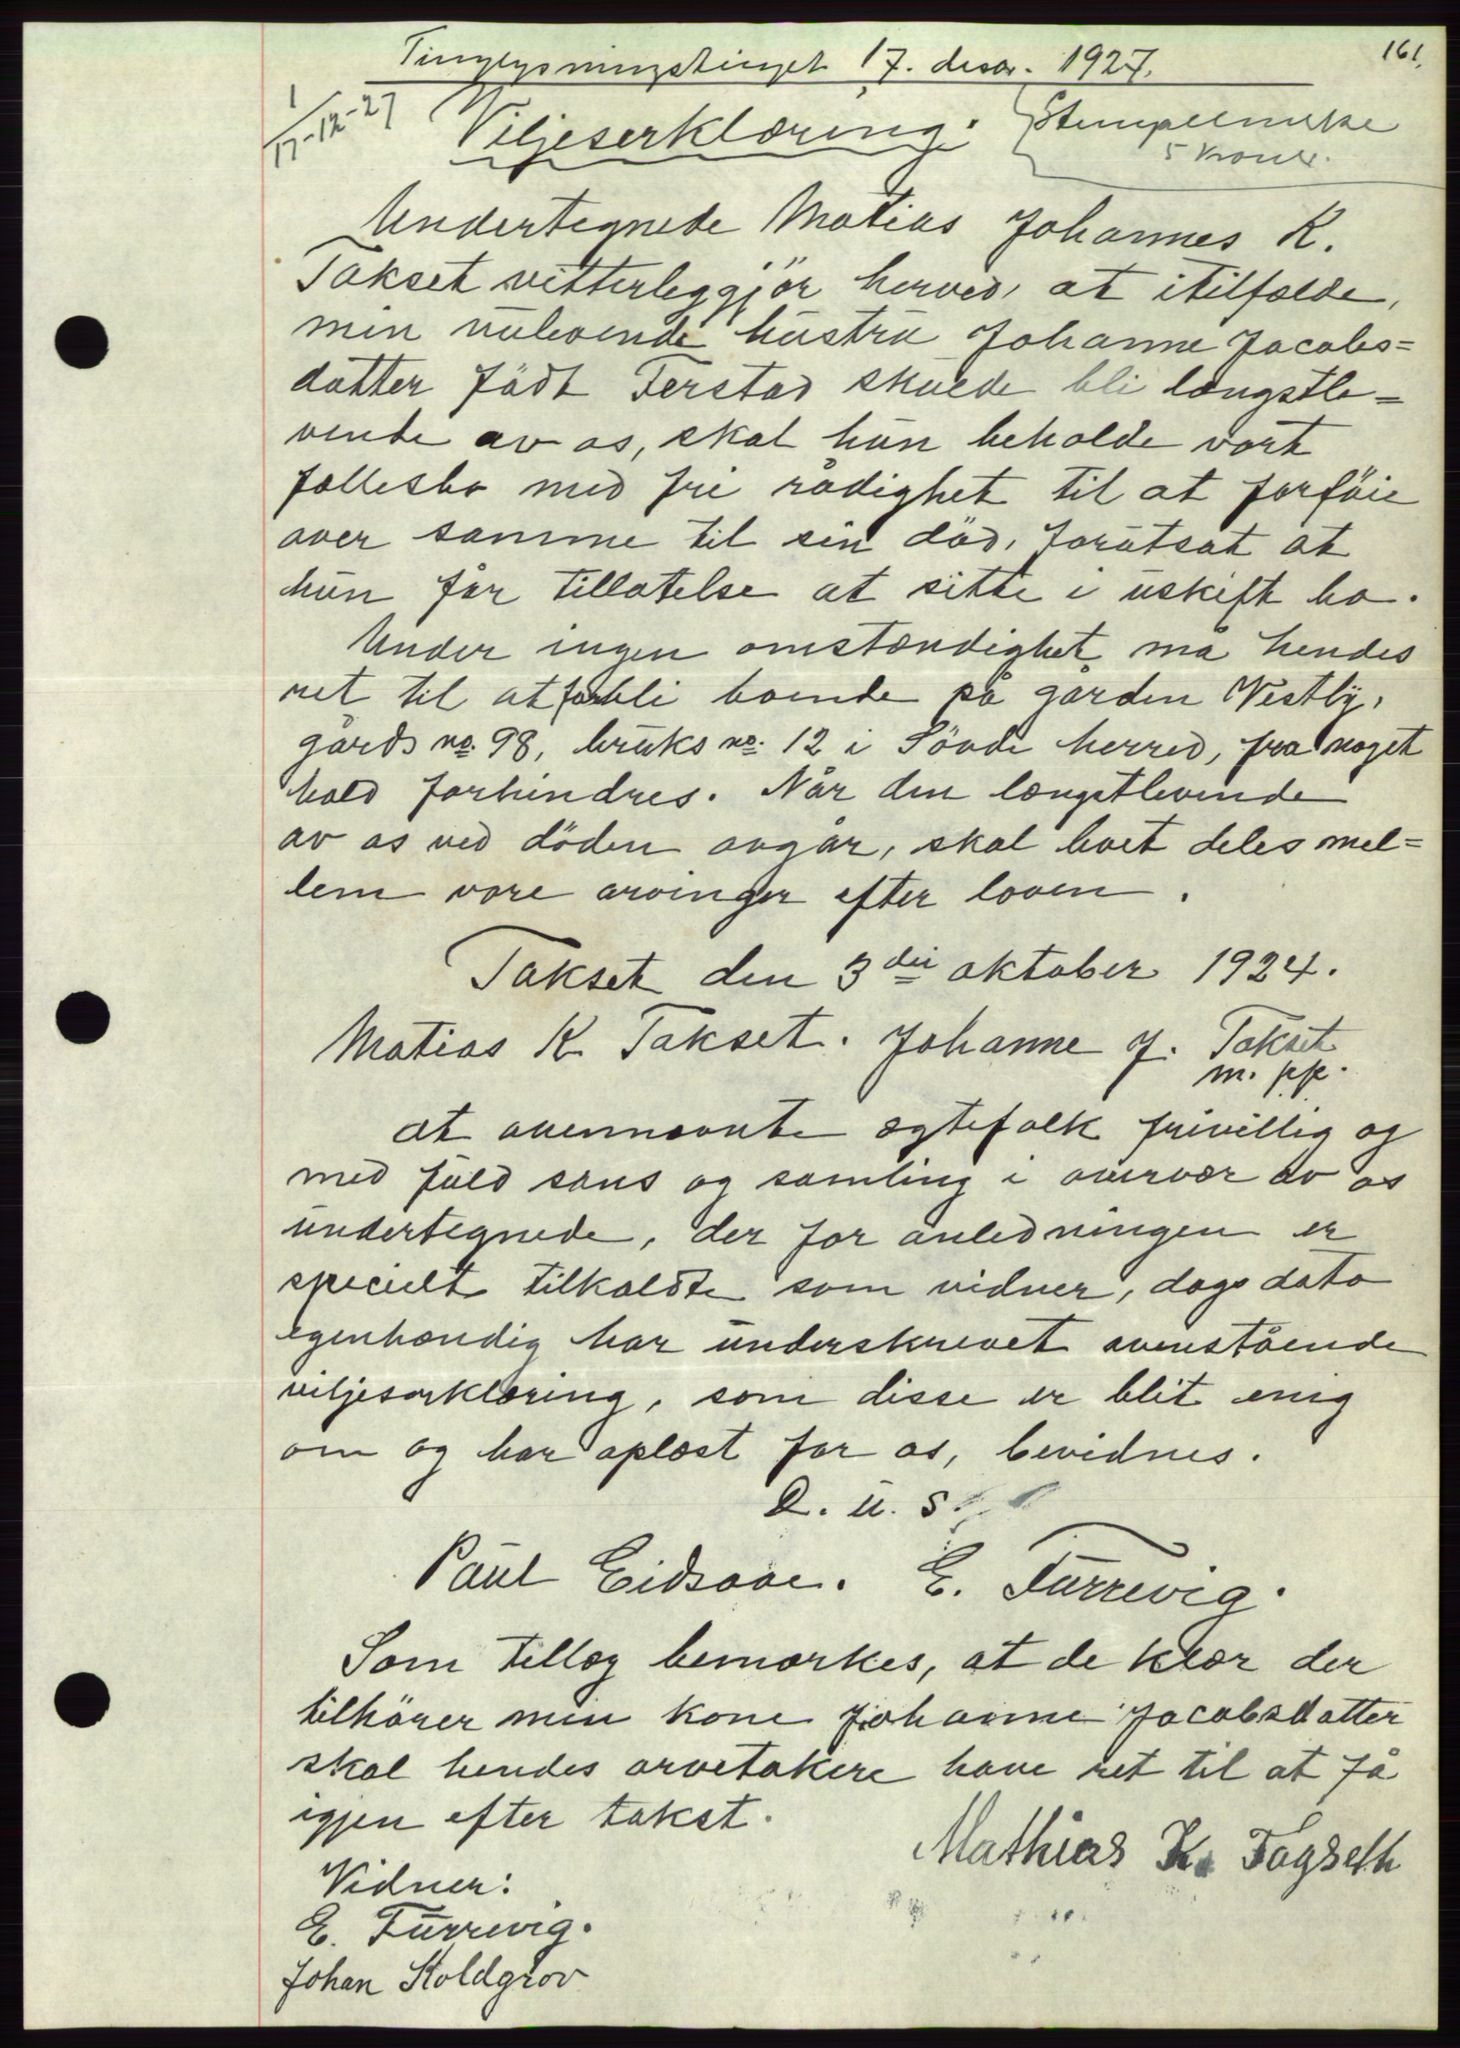 161.
Tinglysningstinget 17. desbr. 1927.
1
17-12-27
Viljeserklæring.
Stempelmerke
5 kroner.
Undertegnede Matias Johannes K.
Takset vitterleggjör herved, at i tilfælde,
min nulevende hustru Johanne Jacobs=
datter född Ferstad skulde bli længstle=
vende av os, skal hun beholde vort
fællesbo med fri rådighet til at forföie
over samme til sin död, forutsat at
hun får tillatelse at sitte i uskift bo.
Under ingen omstændighet må hendes
ret til at forbli boende på gården Vestby,
gårds no. 98, bruks no. 12 i Sövde herred, fra noget
hold forhindres. Når den længstlevende
av os ved döden avgår, skal boet deles mel=
lem vore arvinger efter loven.
Takset den 3die oktober 1924.
Matias K Takset. Johanne J. Takset
m. pp.
At ovennævnte ægtefolk frivillig og
med fuld sans og samling i overvær av os
undertegnede, der for anledningen er
specielt tilkaldte som vidner, dags dato
egenhændig har underskrevet ovenstående
viljeserklæring, som disse er blit enig
om og har oplæst for os, bevidnes.
D. u. s.
Paul Eidsaae. E. Furrevig.
Som tillæg bemærkes, at de klær der
tilhörer min kone Johanne Jacobsdatter
skal hendes arvetakere have ret til at få
igjen efter takst.
Mathias K. Tagseth
Vidner:
E. Furrevig.
Johan Koldgrov